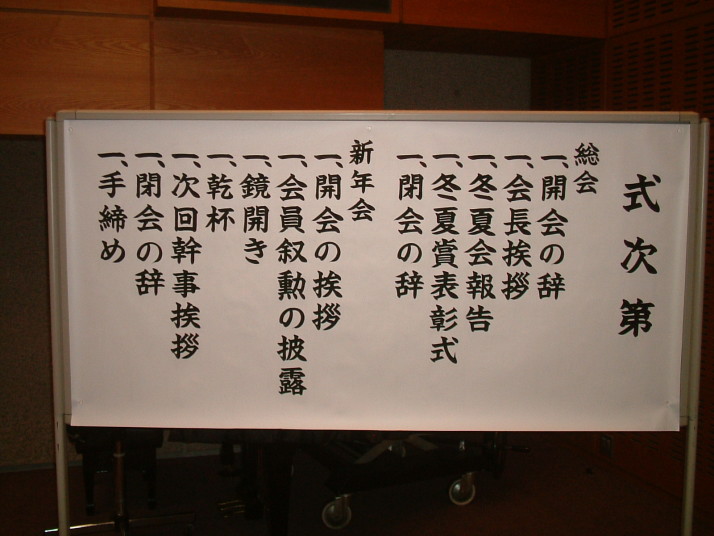 式次第
総会
一、開会の辞
一、会長挨拶
一、冬夏会報告
一、冬夏賞表彰式
一、閉会の辞
新年会
一、開会の挨拶
一、会員叙勲の披露
一、鏡開き
一、乾杯
一、次回幹事挨拶
一、閉会の辞
一、手締め